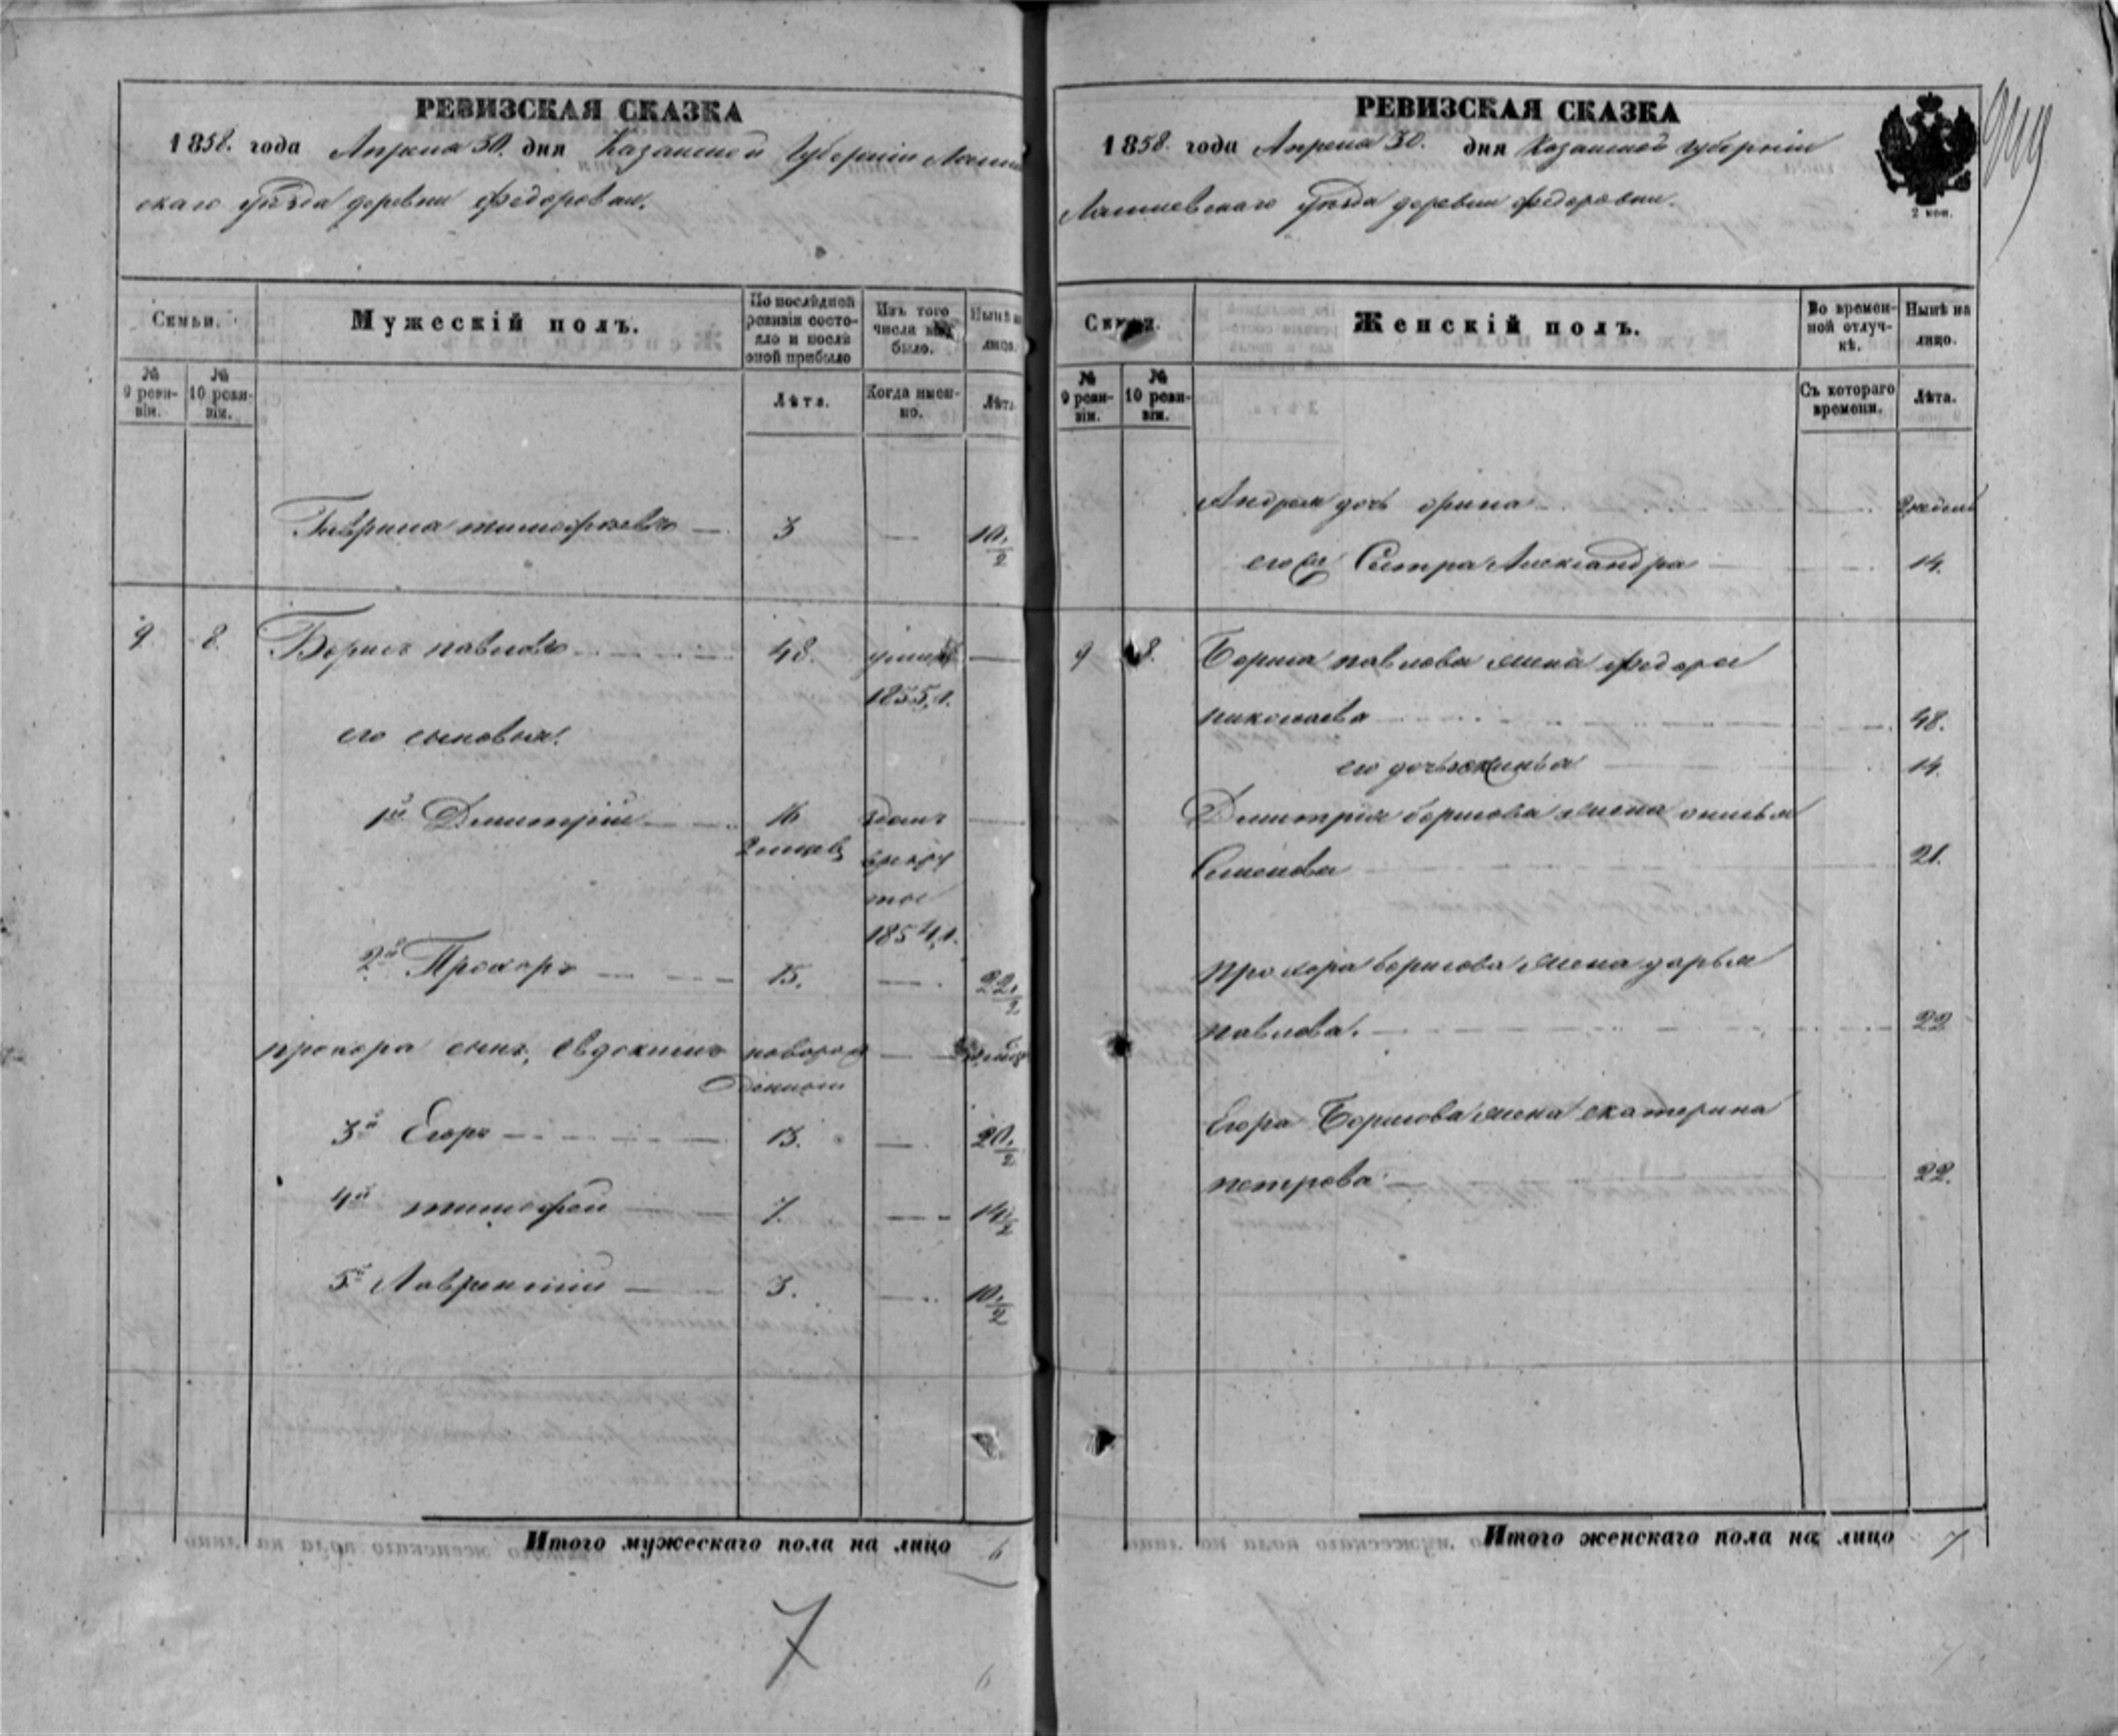 РЕВИЗСКАЯ СКАЗКА
1858. года Апреля 30. дня Казанской Губернiи Лаише
скаго уѣзда деревни Федоровки.
Семьи.
Мужескiй полъ.
По послѣдней ревизiи состояло и послѣ оной прибыло
Изъ того числа выбыло.
Нынѣ на лицо.
№ 9 ревизiи.
№ 10 ревизiи.
Лѣта.
Когда именно.
Лѣта
Гаврила тимофеевъ 3 — 10 1/2
9 8. Борисъ павловъ 48. умеръ —
1855 г.
его сыновья:
1й Димитрiй 16 зданъ —
2 месяц в рекру
ты
1854 г.
2й Прохоръ 15. — 22 1/2
прохора сынъ, Евдокимъ новорож —
денной
3й Егоръ 13. — 20 1/2
4й тимофей 7. — 14 1/2
5й Лаврентiй 3. — 10 1/2
Итого мужескаго пола на лицо 6
7
6
РЕВИЗСКАЯ СКАЗКА
1858. года Апреля 30. дня Казанской губернiи
Лаишевскаго уѣзда деревни федоровки.
2 коп.
Семьи.
Женскiй полъ.
Во временной отлучкѣ.
Нынѣ на лицо.
№ 9 ревизiи.
№ 10 ревизiи.
Съ котораго времени.
Лѣта.
Андрея дочь орина
его же Сестра Александра 14.
9 8. Бориса павлова жена федора
николаева 48.
его дочь 14.
Димитрiя борисова жена
Семенова 21.
прохора борисова жена дарья
павлова. 22
Егора Борисова жена екатерина
петрова 22.
Итого женскаго пола на лицо 7